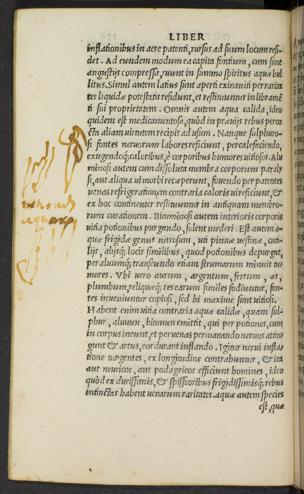 LIBER
inflationibus in aere patenti, rursus ad suum locum resi-
det. Ad eundem modum ea capita fontium, cum sunt
angustijs compressa, ruunt in summo spiritus aquæ bul
litus. Simul autem latius sunt aperti exinaniti per rarita
tes liquidæ potestatis residunt, et restituuntur in librame̅
ti sui proprietatem. Omnis autem aqua calida, ideo
quidem est medicamentosa, quòd in prauijs rebus perco
cta aliam uirtutem recipit ad usum. Nanque sulphuro-
si fontes neruorum labores reficiunt, percalefaciendo,
exugendoq; caloribus, è corporibus humores uitiosos. Alu
minosi autem cum dissoluta membra corporum paraly
si, aut aliqua ui morbi receperunt, fouendo per patentes
uenas refrigerationem contraria caloris ui reficiunt, &
ex hoc continenter restituuntur in antiquam membro-
rum curationem. Bituminosi autem interioris corporis
uitia potionibus purgando, solent mederi. Est autem a-
quæ frigidæ genus nitrosum, uti pinnæ uestinæ, cuti-
lijs, alijsq; locis similibus, quod potionibus depurgat,
per aluumq; transeundo etiam strumarum minuit tu
mores. Vbi uero aurum, argentum, ferrum, æs,
plumbum, reliquæq; res earum similes fodiuntur, fon-
tes inueniuntur copiosi, sed hi maxime sunt uitiosi.
Habent enim uitia contraria aquæ calidæ, quam sul-
phur, alumen, bitumen emittit, qui per potiones, cum
in corpus ineunt, et per uenas permanando neruos attin
gunt & artus, eos durant inflando. Igitur nerui infla
tione turgentes, ex longitudine contrahuntur, & ita
aut neuricos, aut podagricos efficiunt homines, ideo
quòd ex durissimis, & spissioribus frigidissimisq; rebus
intinctas habent uenarum raritates. aquæ autem species
est, quæ